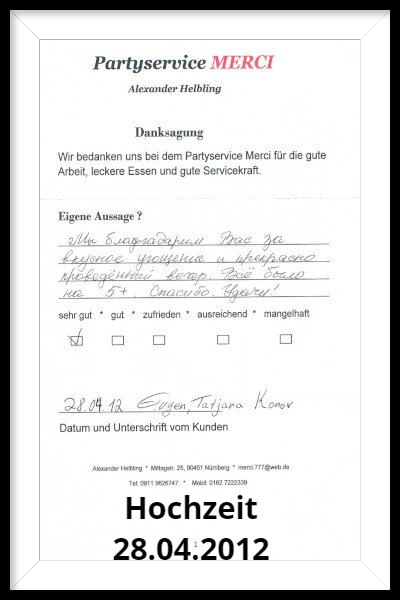 Partyservice MERCI
Alexander Helbling
Danksagung
Wir bedanken uns bei dem Partyservice Merci für die gute
Arbeit, leckere Essen und gute Servicekraft.
Eigene Aussage ?
Мы благадарим Вас за
вкусное угощение и прекрасно
проведённый вечер. Всё было
на 5+. Спасибо. Удачи!
sehr gut * gut * zufrieden * ausreichend * mangelhaft
28.04.12 Eugen, Tatjana Konov
Datum und Unterschrift vom Kunden
Alexander Helbling * Mittagstr. 25, 90451 Nürnberg * merci.777@web.de
Tel: 0911 9626747 * Mobil: 0162 7222339
Hochzeit
28.04.2012